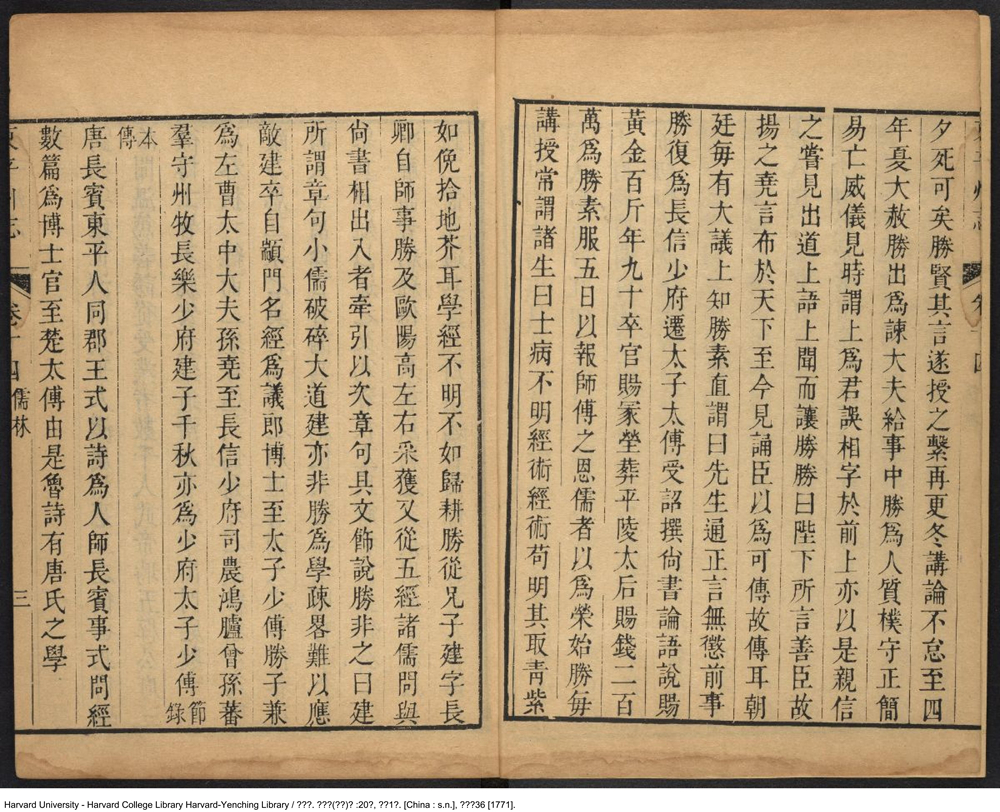 夕死可矣勝賢其言遂授之繫再更冬講論不怠至四
年夏大赦勝出為諫大夫給事中勝為人質樸守正簡
易亡威儀見時謂上為君誤相字於前上亦以是親信
之嘗見出道上語上聞而讓勝勝曰陛下所言善臣故
揚之堯言布於天下至今見誦臣以為可傳故傳耳朝
廷每有大議上知勝素直謂曰先生通正言無懲前事
勝復為長信少府遷太子太傅受詔撰尚書論語說賜
黃金百斤年九十卒官賜冢塋葬平陵太后賜錢二百
萬為勝素服五日以報師傅之恩儒者以為榮始勝每
講授常謂諸生曰士病不明經術經術苟明其取青紫
如俛拾地芥耳學經不明不如歸耕勝從兄子建字長
卿自師事勝及歐陽高左右采獲又從五經諸儒問與
尚書相出入者牽引以次章句具文飾說勝非之曰建
所謂章句小儒破碎大道建亦非勝為學疎畧難以應
敵建卒自顓門名經為議郎博士至太子少傅勝子兼
為左曹太中大夫孫堯至長信少府司農鴻臚曾孫蕃
羣守州牧長樂少府建子千秋亦為少府太子少傅節錄
本傳
唐長賓東平人同郡王式以詩為人師長賓事式問經
數篇為博士官至楚太傅由是魯詩有唐氏之學
東平州志 卷十四 儒林 三
Harvard University - Harvard College Library Harvard-Yenching Library / ???. ???(??)? :20?, ??1?. [China : s.n.], ???36 [1771].